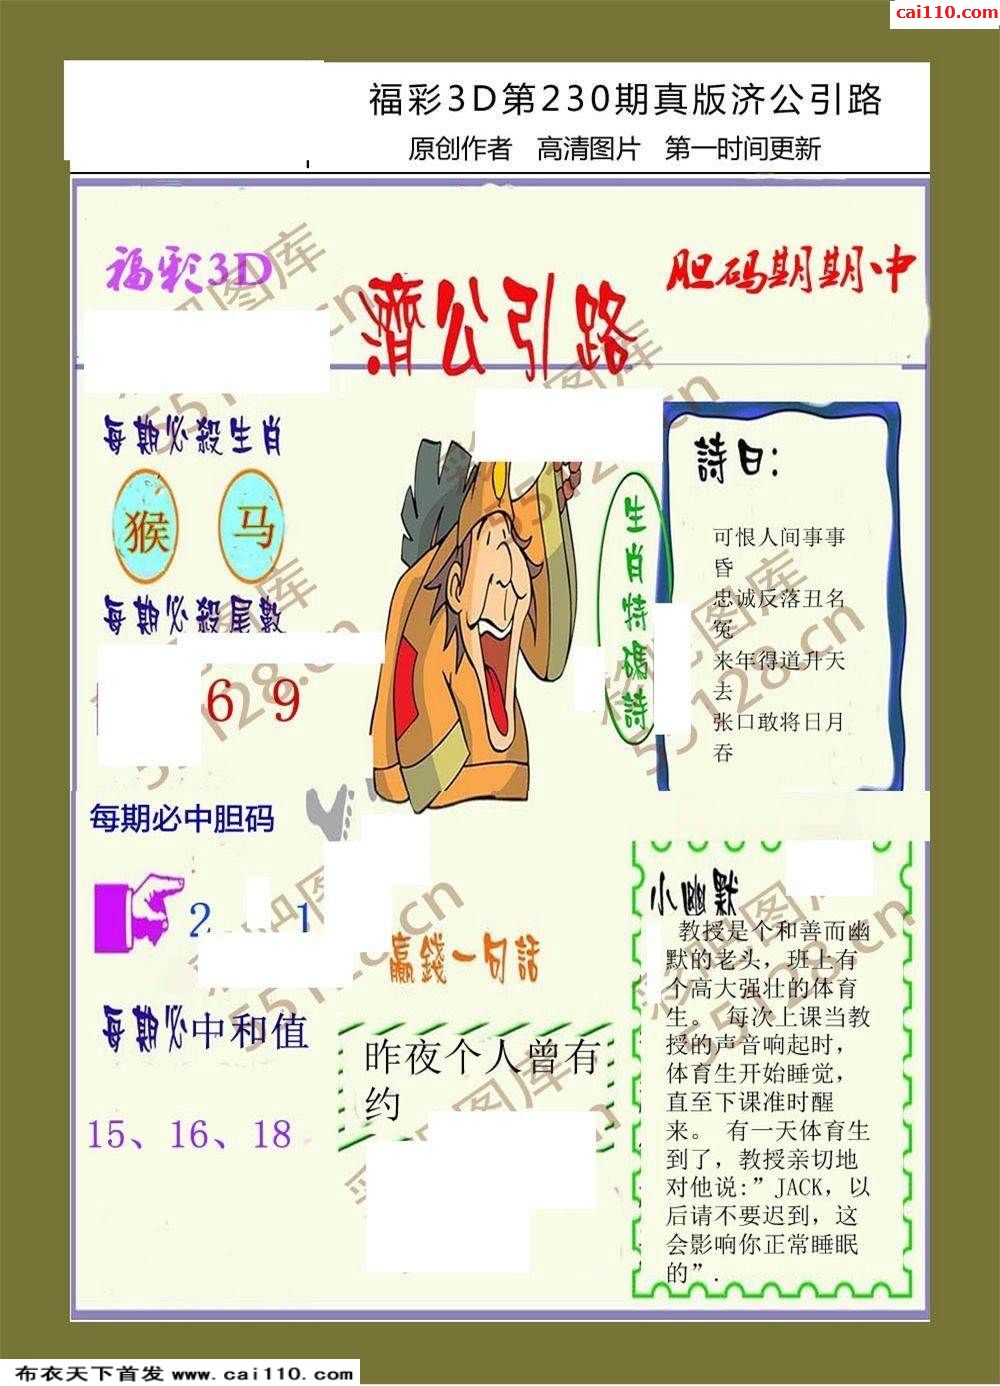 cai110.com
福彩3D第230期真版济公引路
原创作者 高清图片 第一时间更新
福彩3D
濟公引路
胆码期期中
每期必殺生肖
猴 马
每期必殺尾數
6 9
每期必中胆码
2 1
每期必中和值
15、16、18
生肖特碼詩
詩曰:
可恨人间事事
昏
忠诚反落丑名
冤
来年得道升天
去
张口敢将日月
吞
贏錢一句話
昨夜个人曾有
约
小幽默
教授是个和善而幽
默的老头，班上有
个高大强壮的体育
生。 每次上课当教
授的声音响起时，
体育生开始睡觉，
直至下课准时醒
来。 有一天体育生
到了，教授亲切地
对他说:”JACK，以
后请不要迟到，这
会影响你正常睡眠
的”.
彩吧图库
55128.cn
布衣天下首发 www.cai110.com